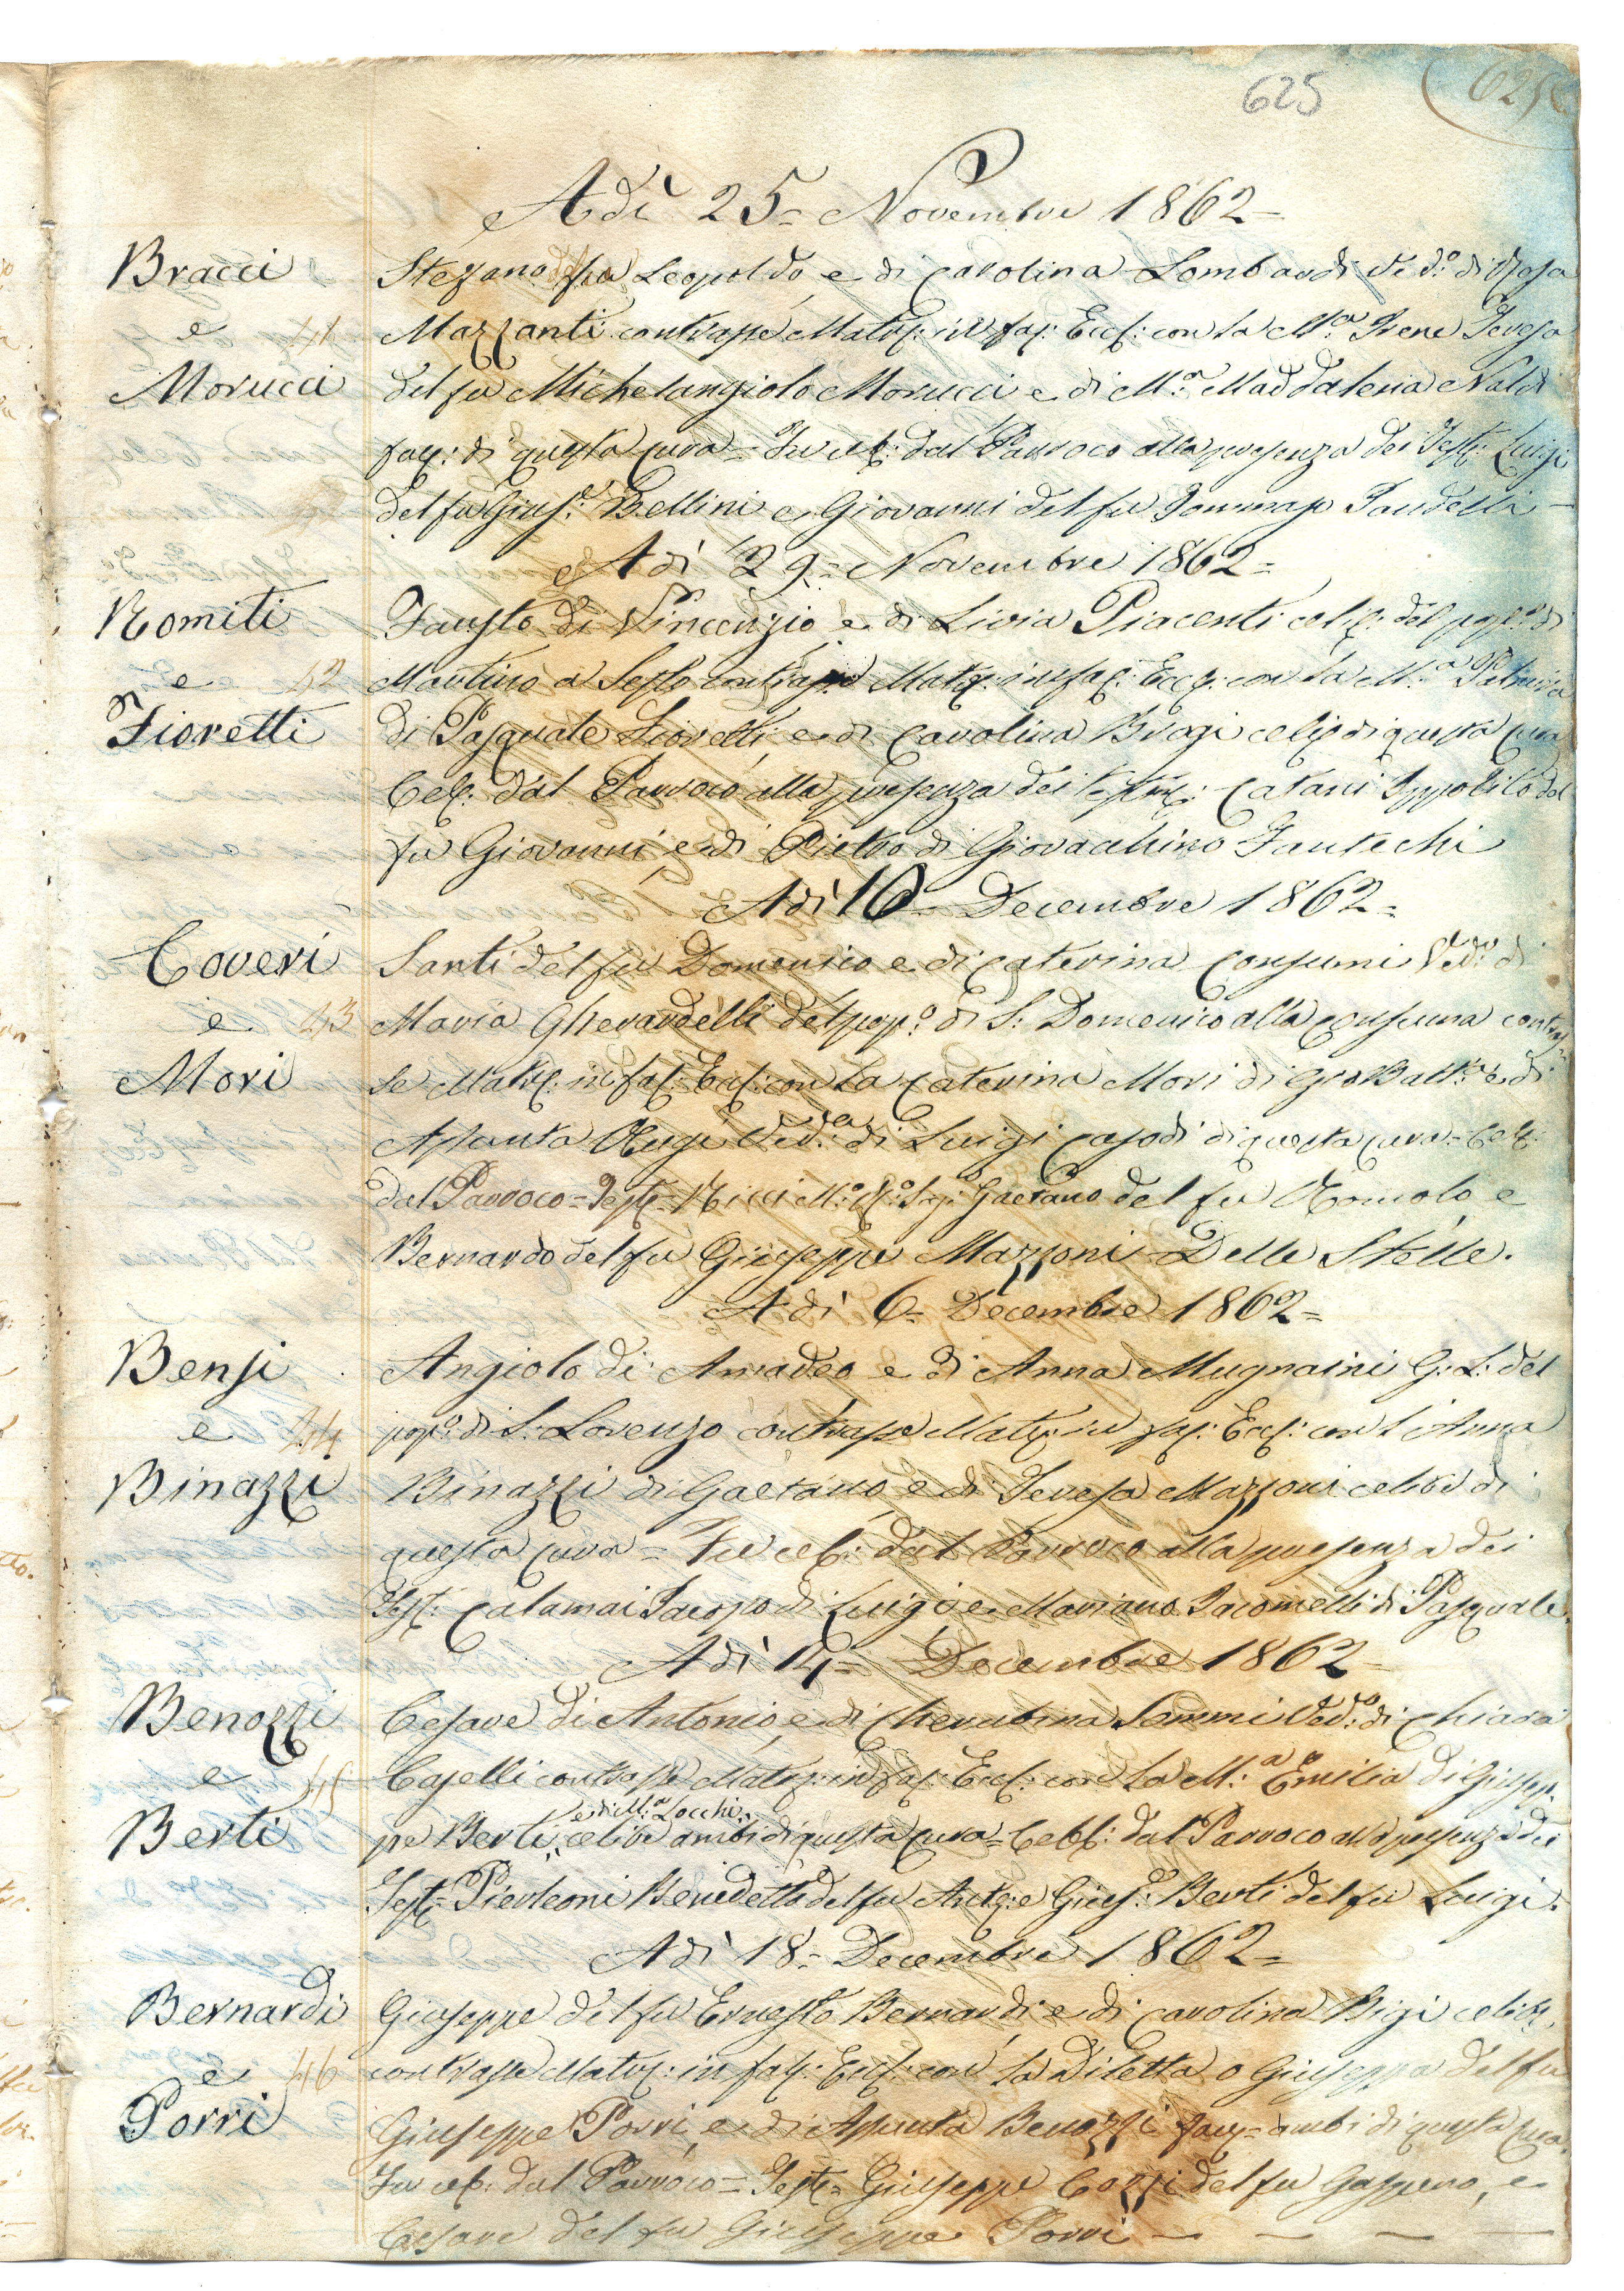 625
625
Adì 25= Novembre 1862=
Bracci
e 41
Morucci
Stefano del fu Leopoldo, e di Carolina Lombardi Ved.º di Rosa
Mazzanti contrasse Matrº: in faς: Eccl: con la M.ª Irene Teresa
del fu Michelangiolo Morucci e di M.ª Maddalena Naldi
di questa Cura= Fu cel: dal Parroco alla presenza dei Testi: Luigi
del fu Gius.e Bellini e Giovanni del fu Tommaso Fardelli —
Adì 29= Novembre 1862=
Romiti
e 42
Fioretti
Fausto di Vincenzio e di Livia Piacenti celib: del pop.º di
Martino a Sesto contrasse Matr: in fac: Eccl: con la M.ª
di Pasquale Fioretti, e di Carolina Biagi celib: di questa Cura
Cel: dal Parroco alla presenza dei testim: Catani Ippolito del
fu Giovanni, e di Pietro di Giovacchino Fantechi
Adì 10= Decembre 1862=
Coveri
e 43
Mori
Santi del fu Domenico e di Caterina Consumi Ved.º di
Maria Gherardelli del pop.º di S: Domenico alla Consuma contras
se Matr: in fac: Eccl: con la Caterina Mori di Gio Batt.ª e di
Assunta Ved.ª di Luigi Casodi di questa Cura= Cel:
dal Parroco= Test= Ricci Gaetano del fu Romolo, e
Bernardo del fu Giuseppe Mazzoni Delle Stelle.
Adì 6= Decembre 1862=
Bensi
e 44
Binazzi
Angiolo di Amadeo e di Anna Mugnaini G: L: del
pop.º di S: Lorenzo contrasse Matr: in fac: Eccl: con l'Anna
Binazzi di Gaetano, e di Teresa Mazzoni celibe di
questa Cura= Fu cel: dal Parroco alla presenza dei
Test: Calamai Jacopo di Luigi e Mariano Jacomelli di Pasquale.
Adì 14= Decembre 1862=
Benozzi
e 45
Berti
Cesare di Antonio, e di Cherubina Sommi Ved.º di Chiara
Caselli contrasse Matr: in fac: Eccl: con la M.ª Emilia di Giusep=
e di M.ª Locchi
pe Berti, celibe ambi di questa Cura= Cell: dal Parroco alla presenza dei
Test= Pierleoni Benedetto del fu Ant.º: e Gius.e: Berti del fu Luigi.
Adì 18= Decembre 1862=
Bernardi
e 46
Porri
Giuseppe del fu Ernesto Bernardi e di Carolina Bigi celib:
contrasse Matr: in fac: Eccl: con la Diletta o Giuseppa del fu
Giuseppe Porri, e di Assunta Benozzi ambi di questa Cura.
Fu cel: dal Parroco= Test= Giuseppe Cozzi del fu Gaspero, e
Cesare del fu Giuseppe Porri — — — —